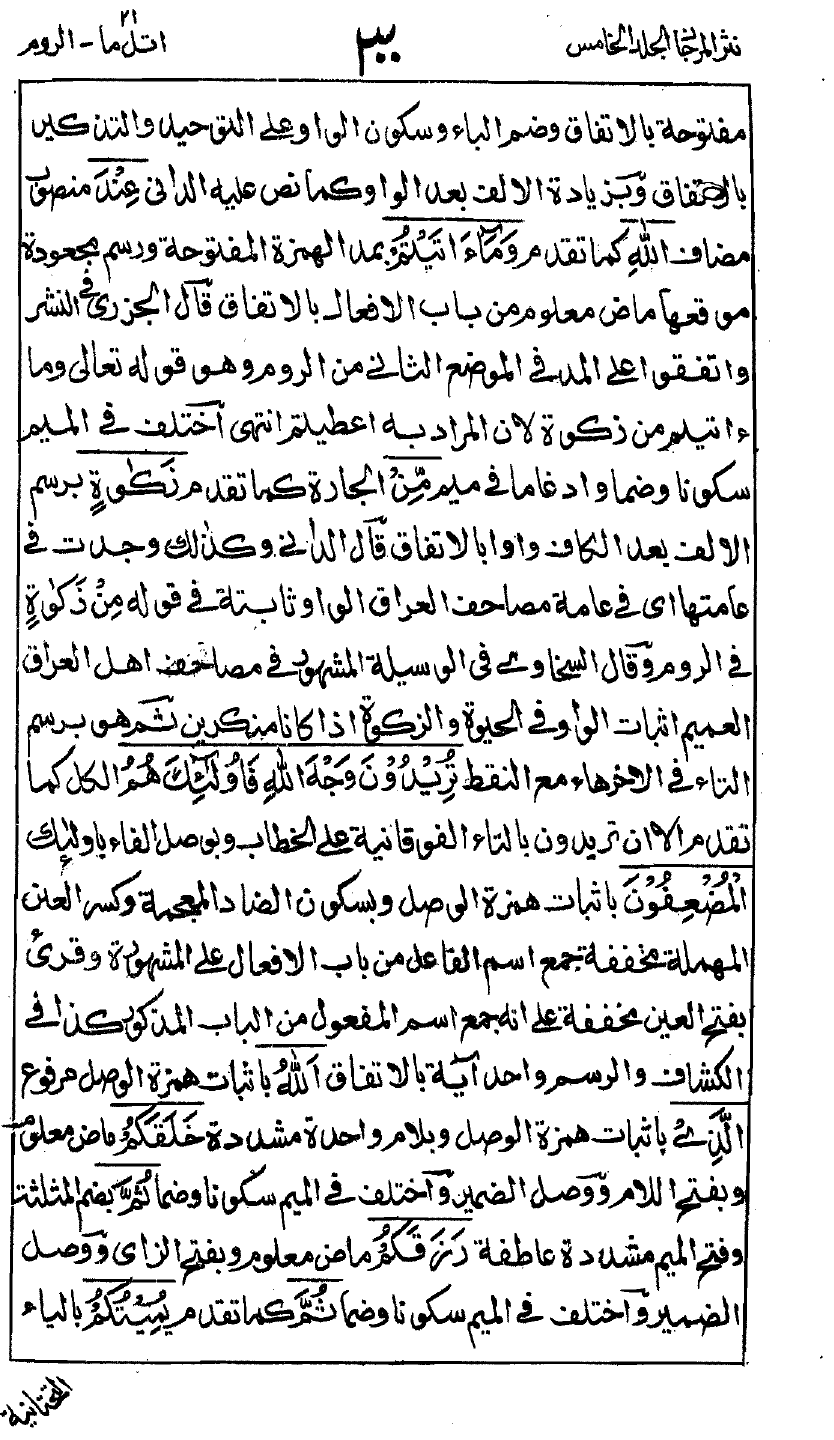 نثر المرجان الجلد الخامس
٣٠٠
اتل ما - الروم
٢١
مفتوحة بالاتفاق وضم الباء وسكون الواو على التوحيد والتذكير
بالاتفاق وبزيادة الالف بعد الواو كما نص عليه الدانى عِنْدَ منصوب
مضاف اللّٰهِ كما تقدم وَمَآءَ اتَيْتُمْ بمد الهمزة المفتوحة ورسم مجعودة
موقعها ماض معلوم من باب الافعال بالاتفاق قال الجزرى فى النشر
واتفقوا على المد فى الموضع الثانى من الروم وهو قوله تعالى وما
ءاتيتم من زكوة لان المراد به اعطيتم انتهى اختلف فى الميم
سكونا وضما وادغاما فى ميم مِّنْ الجارة كما تقدم زَكٰوةٍ برسم
الالف بعد الكاف واوا بالاتفاق قال الدانى وكذلك وجدت فى
عامتها اى فى عامة مصاحف العراق الواو ثابتة فى قوله مِنْ زَكٰوةٍ
فى الروم وقال السخاوى فى الوسيلة المشهور فى مصاحف اهل العراق
العميم اثبات الواو فى الحيوة والزكوة اذا كانا منكرين ثم هو برسم
التاء فى الاخر هاء مع النقط تُرِيْدُوْنَ وَجْهَ اللّٰهِ فَاُولٰٓئِكَ هُمُ الكل كما
تقدم الا ان تريدون بالتاء الفوقانية على الخطاب وبوصل الفاء باولئك
الْمُضْعِفُوْنَ باثبات همزة الوصل وبسكون الضاد المعجمة وكسر العين
المهملة مخففة جمع اسم الفاعل من باب الافعال على المشهورة وقرئ
بفتح العين مخففة على انه جمع اسم المفعول من الباب المذكور كذا فى
الكشاف والرسم واحد اية بالاتفاق اَللّٰهُ باثبات همزة الوصل مرفوع
الَّذِىْ باثبات همزة الوصل وبلام واحدة مشددة خَلَقَكُمْ ماض معلوم
وبفتح اللام ووصل الضمير واختلف فى الميم سكونا وضما ثُمَّ بضم المثلثة
وفتح الميم مشددة عاطفة رَزَقَكُمْ ماض معلوم وبفتح الزاى ووصل
الضمير واختلف فى الميم سكونا وضما ثُمَّ كما تقدم يُمِيْتُكُمْ بالياء
التحتانية